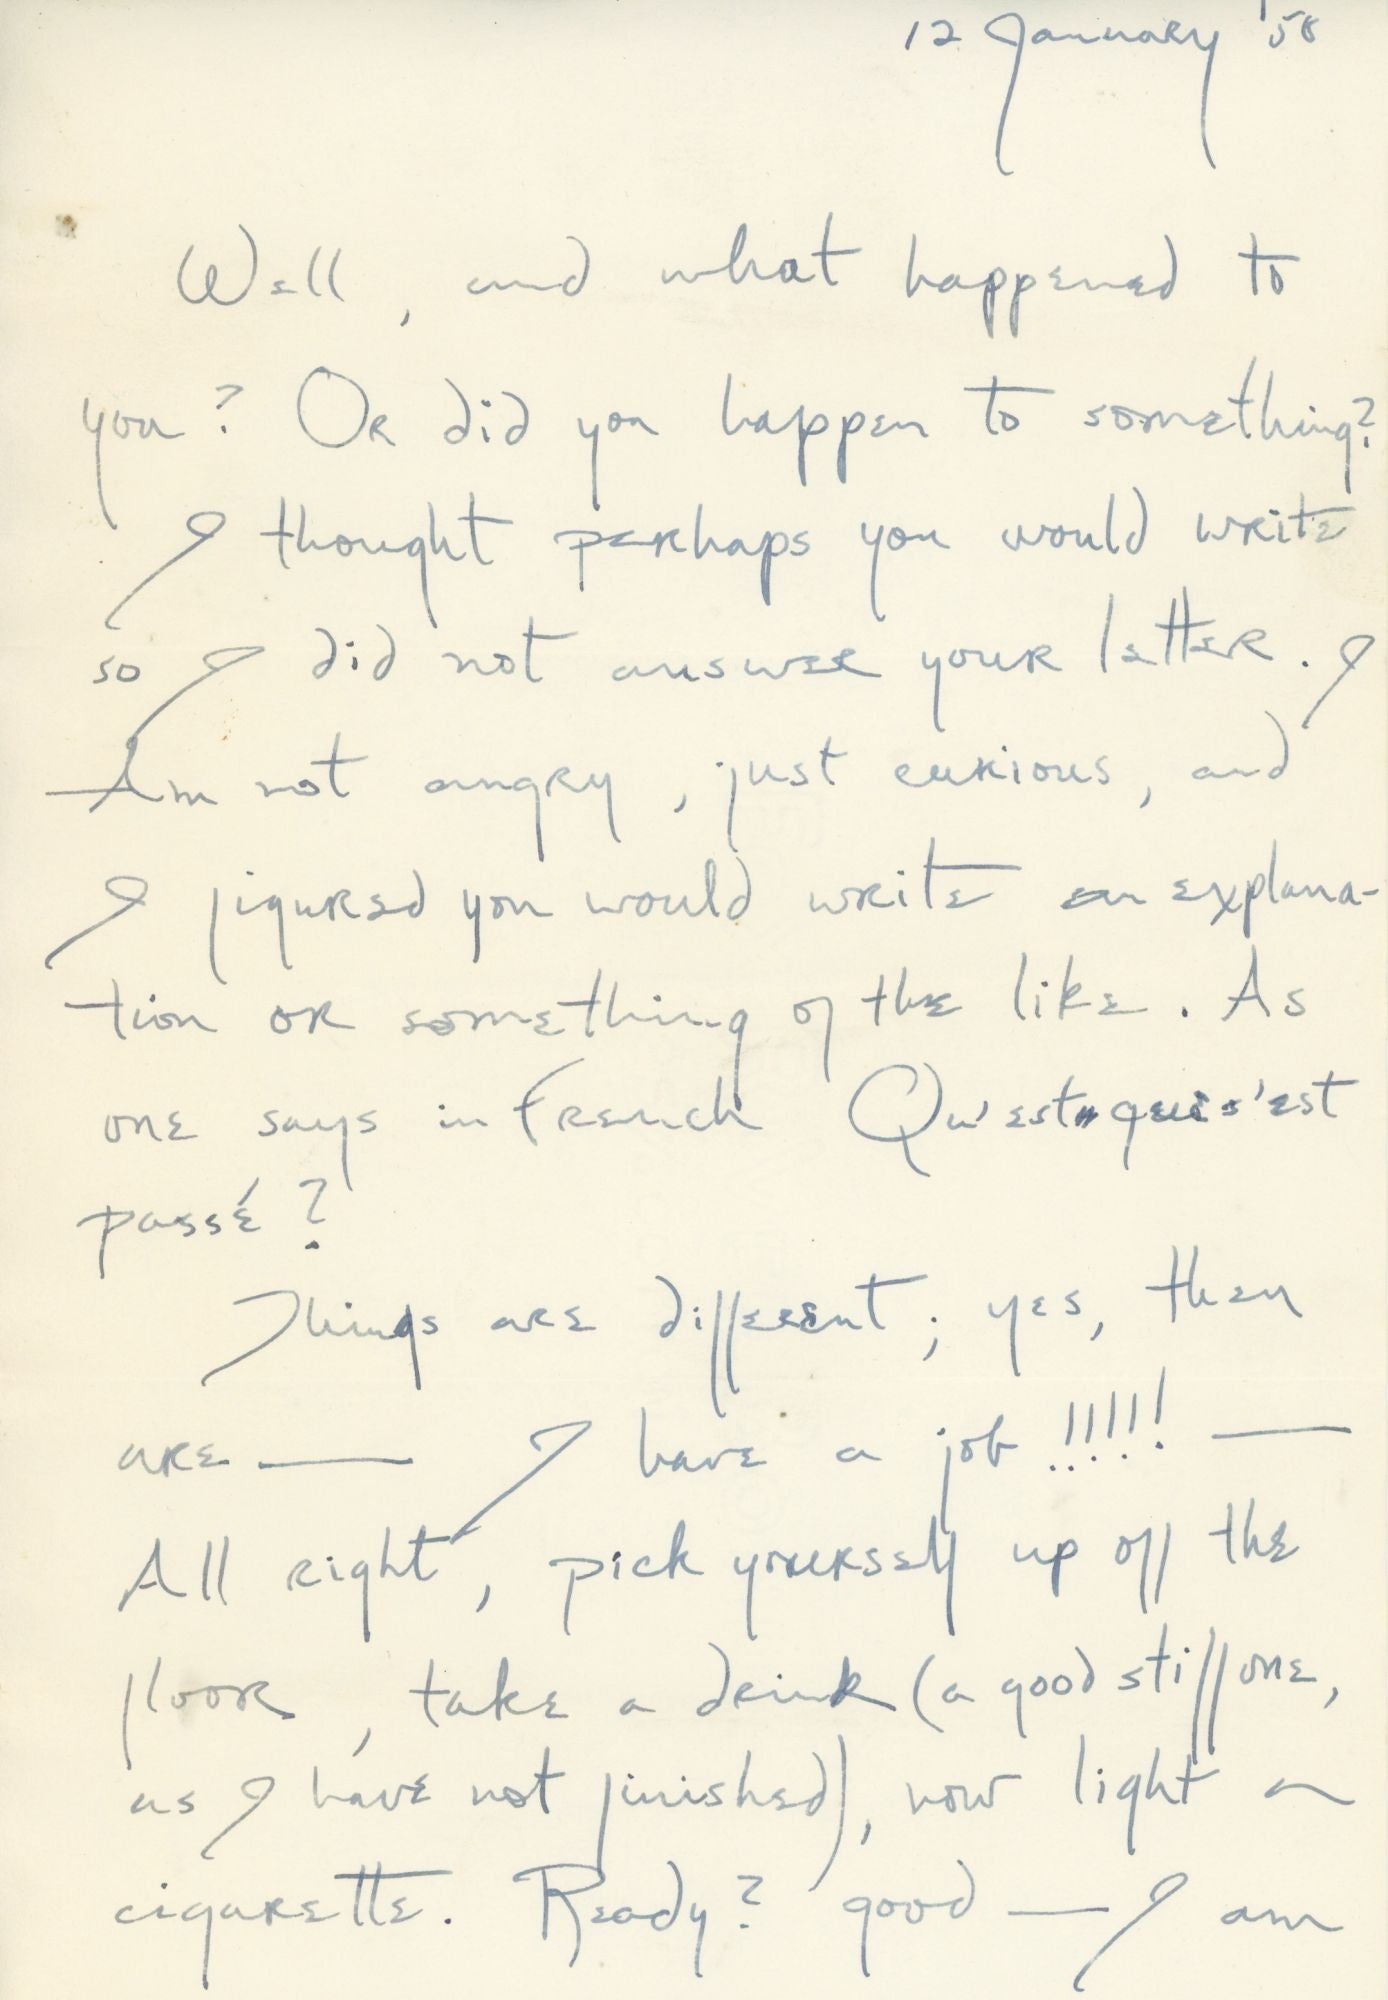 12 January '58
Well, and what happened to
you? Or did you happen to something?
I thought perhaps you would write
so I did not answer your letter. I
Am not angry, just curious, and
I figured you would write an explana-
tion or something of the like. As
one says in French Qu'est-qui s'est
passé?
Things are different; yes, they
are — I have a job !!!!! —
All right, pick yourself up off the
floor, take a drink (a good stiff one,
as I have not finished), now light a
cigarette. Ready? good — I am